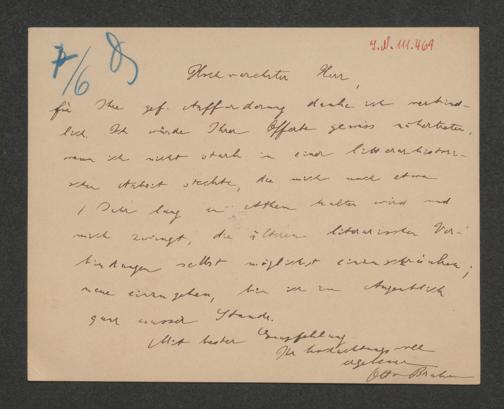 7/6 85
J.N. 111.469
Hochverehrter Herr,
für Ihre gef. Aufforderung danke ich verbind-
lich. Ich würde Ihrer Offerte gewiss nähertreten,
wenn ich nicht stark in einer litterarhistori-
schen Arbeit steckte, die mich noch etwa
1 Jahr lang in Athem halten wird und
mich zwingt, die älteren literarischen Ver-
bindungen selbst möglichst einzuschränken;
neue einzugehen, bin ich im Augenblick
ganz ausser Stande.
Mit bester Empfehlung
Ihr hochachtungsvoll
ergebener
Otto Brahm